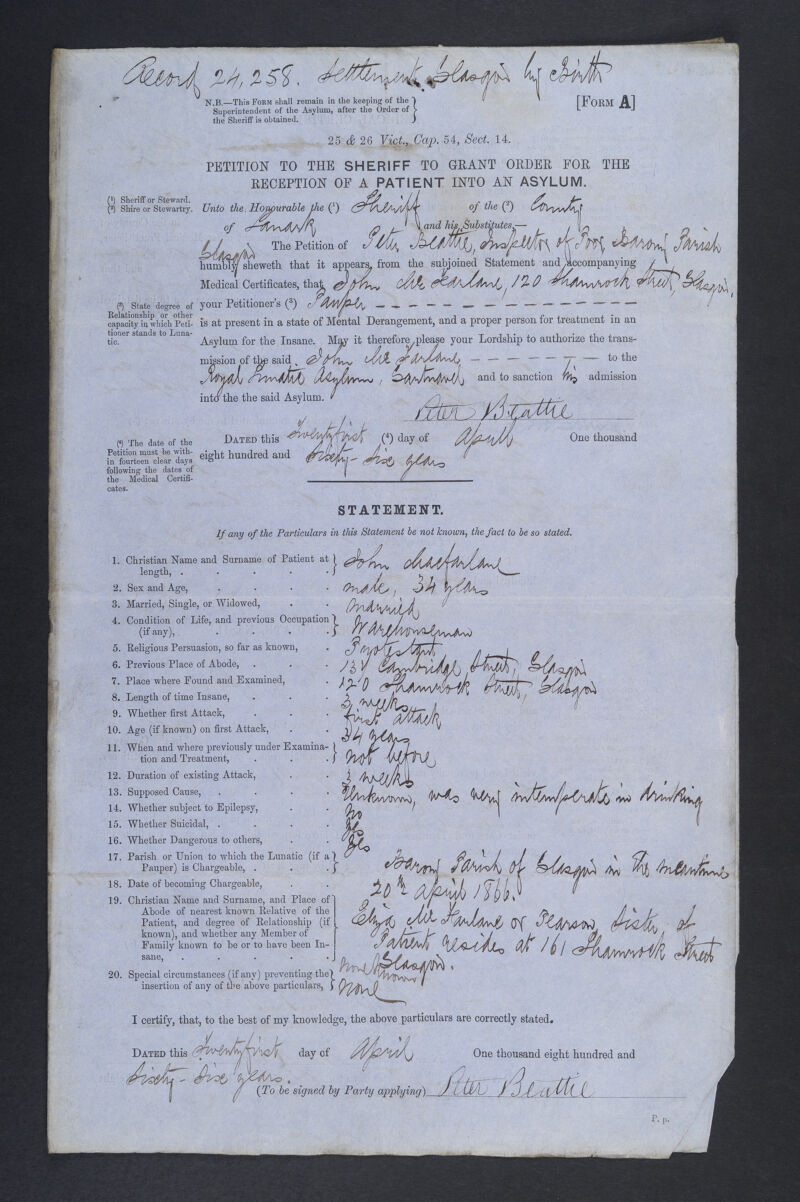 Record 24,258. Settlement Glasgow by Birth
N.B.—This Form shall remain in the keeping of the
Superintendent of the Asylum, after the Order of
the Sheriff is obtained.
[Form A]
25 & 26 Vict., Cap. 54, Sect. 14.
PETITION TO THE SHERIFF TO GRANT ORDER FOR THE
RECEPTION OF A PATIENT INTO AN ASYLUM.
(¹) Sheriff or Steward.
(²) Shire or Stewartry.
Unto the Honourable the (¹) Sheriff of the (²) County
of Lanark and his Substitutes,—
The Petition of Peter Beattie, Inspector of Poor Barony Parish
Glasgow
humbly sheweth that it appears from the subjoined Statement and accompanying
Medical Certificates, that John McFarlane, 120 Shamrock Street, Glasgow,
(³) State degree of
Relationship or other
capacity in which Peti-
tioner stands to Luna-
tic.
your Petitioner's (³) Pauper
is at present in a state of Mental Derangement, and a proper person for treatment in an
Asylum for the Insane. May it therefore please your Lordship to authorize the trans-
mission of the said John McFarlane to the
Royal Lunatic Asylum, Gartnavel and to sanction his admission
into the the said Asylum.
Peter Beattie
(⁴) The date of the
Petition must be with-
in fourteen clear days
following the dates of
the Medical Certifi-
cates.
Dated this Twenty first (⁴) day of April One thousand
eight hundred and Sixty-Six years
STATEMENT.
If any of the Particulars in this Statement be not known, the fact to be so stated.
1. Christian Name and Surname of Patient at
length, . John Macfarlane
2. Sex and Age, male, 34 years
3. Married, Single, or Widowed, married
4. Condition of Life, and previous Occupation
(if any), Warehouseman
5. Religious Persuasion, so far as known, Protestant
6. Previous Place of Abode, Cambridge Street, Glasgow
7. Place where Found and Examined, 120 Shamrock Street, Glasgow
8. Length of time Insane, 3 weeks
9. Whether first Attack, first attack
10. Age (if known) on first Attack, 34 years
11. When and where previously under Examina-
tion and Treatment, not before
12. Duration of existing Attack, 3 weeks
13. Supposed Cause, Unknown, was very intemperate in drinking
14. Whether subject to Epilepsy, No
15. Whether Suicidal, Yes
16. Whether Dangerous to others, Yes
17. Parish or Union to which the Lunatic (if a
Pauper) is Chargeable, Barony Parish of Glasgow in the meantime
18. Date of becoming Chargeable, 20th April 1866.
19. Christian Name and Surname, and Place of
Abode of nearest known Relative of the
Patient, and degree of Relationship (if
known), and whether any Member of
Family known to be or to have been In-
sane, Eliza McFarlane or Pearson, Sister of
Patient resides at 161 Shamrock Street
Glasgow.
None known
20. Special circumstances (if any) preventing the
insertion of any of the above particulars, None
I certify, that, to the best of my knowledge, the above particulars are correctly stated.
Dated this Twenty first day of April One thousand eight hundred and
Sixty-Six years.
(To be signed by Party applying) Peter Beattie
P. p.